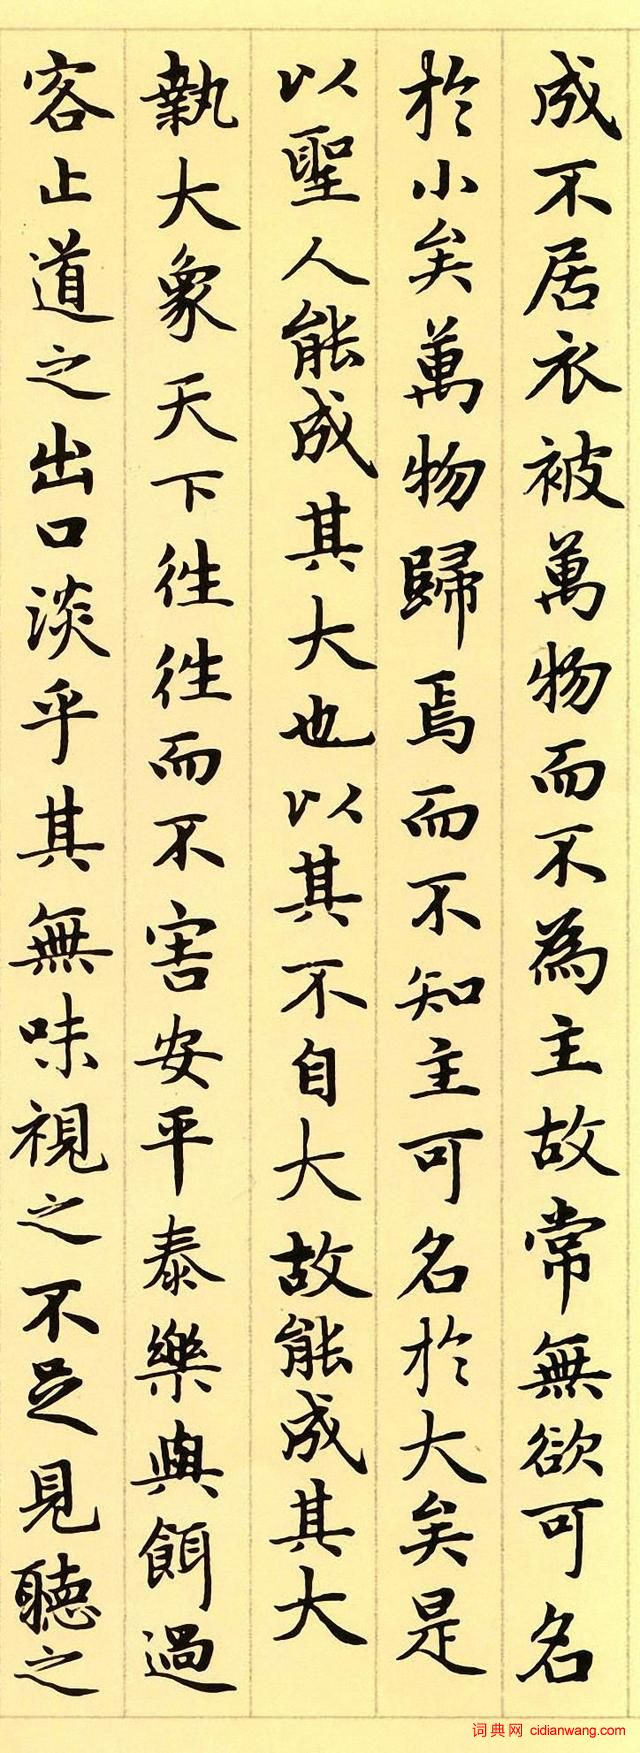 成不居衣被萬物而不為主故常無欲可名
於小矣萬物歸焉而不知主可名於大矣是
以聖人能成其大也以其不自大故能成其大
執大象天下往往而不害安平泰樂與餌過
客止道之出口淡乎其無味視之不足見聽之
词典网 cidianwang.com